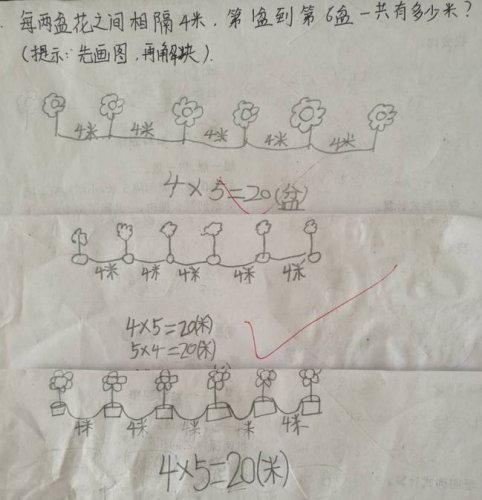 每两盆花之间相隔4米，第1盆到第6盆一共有多少米？
(提示：先画图，再解决).
4米 4米 4米 4米 4米
4×5=20(盆)
4米 4米 4米 4米 4米
4×5=20(米)
5×4=20(米)
4米 4米 4米 米 4米
4×5=20(米)